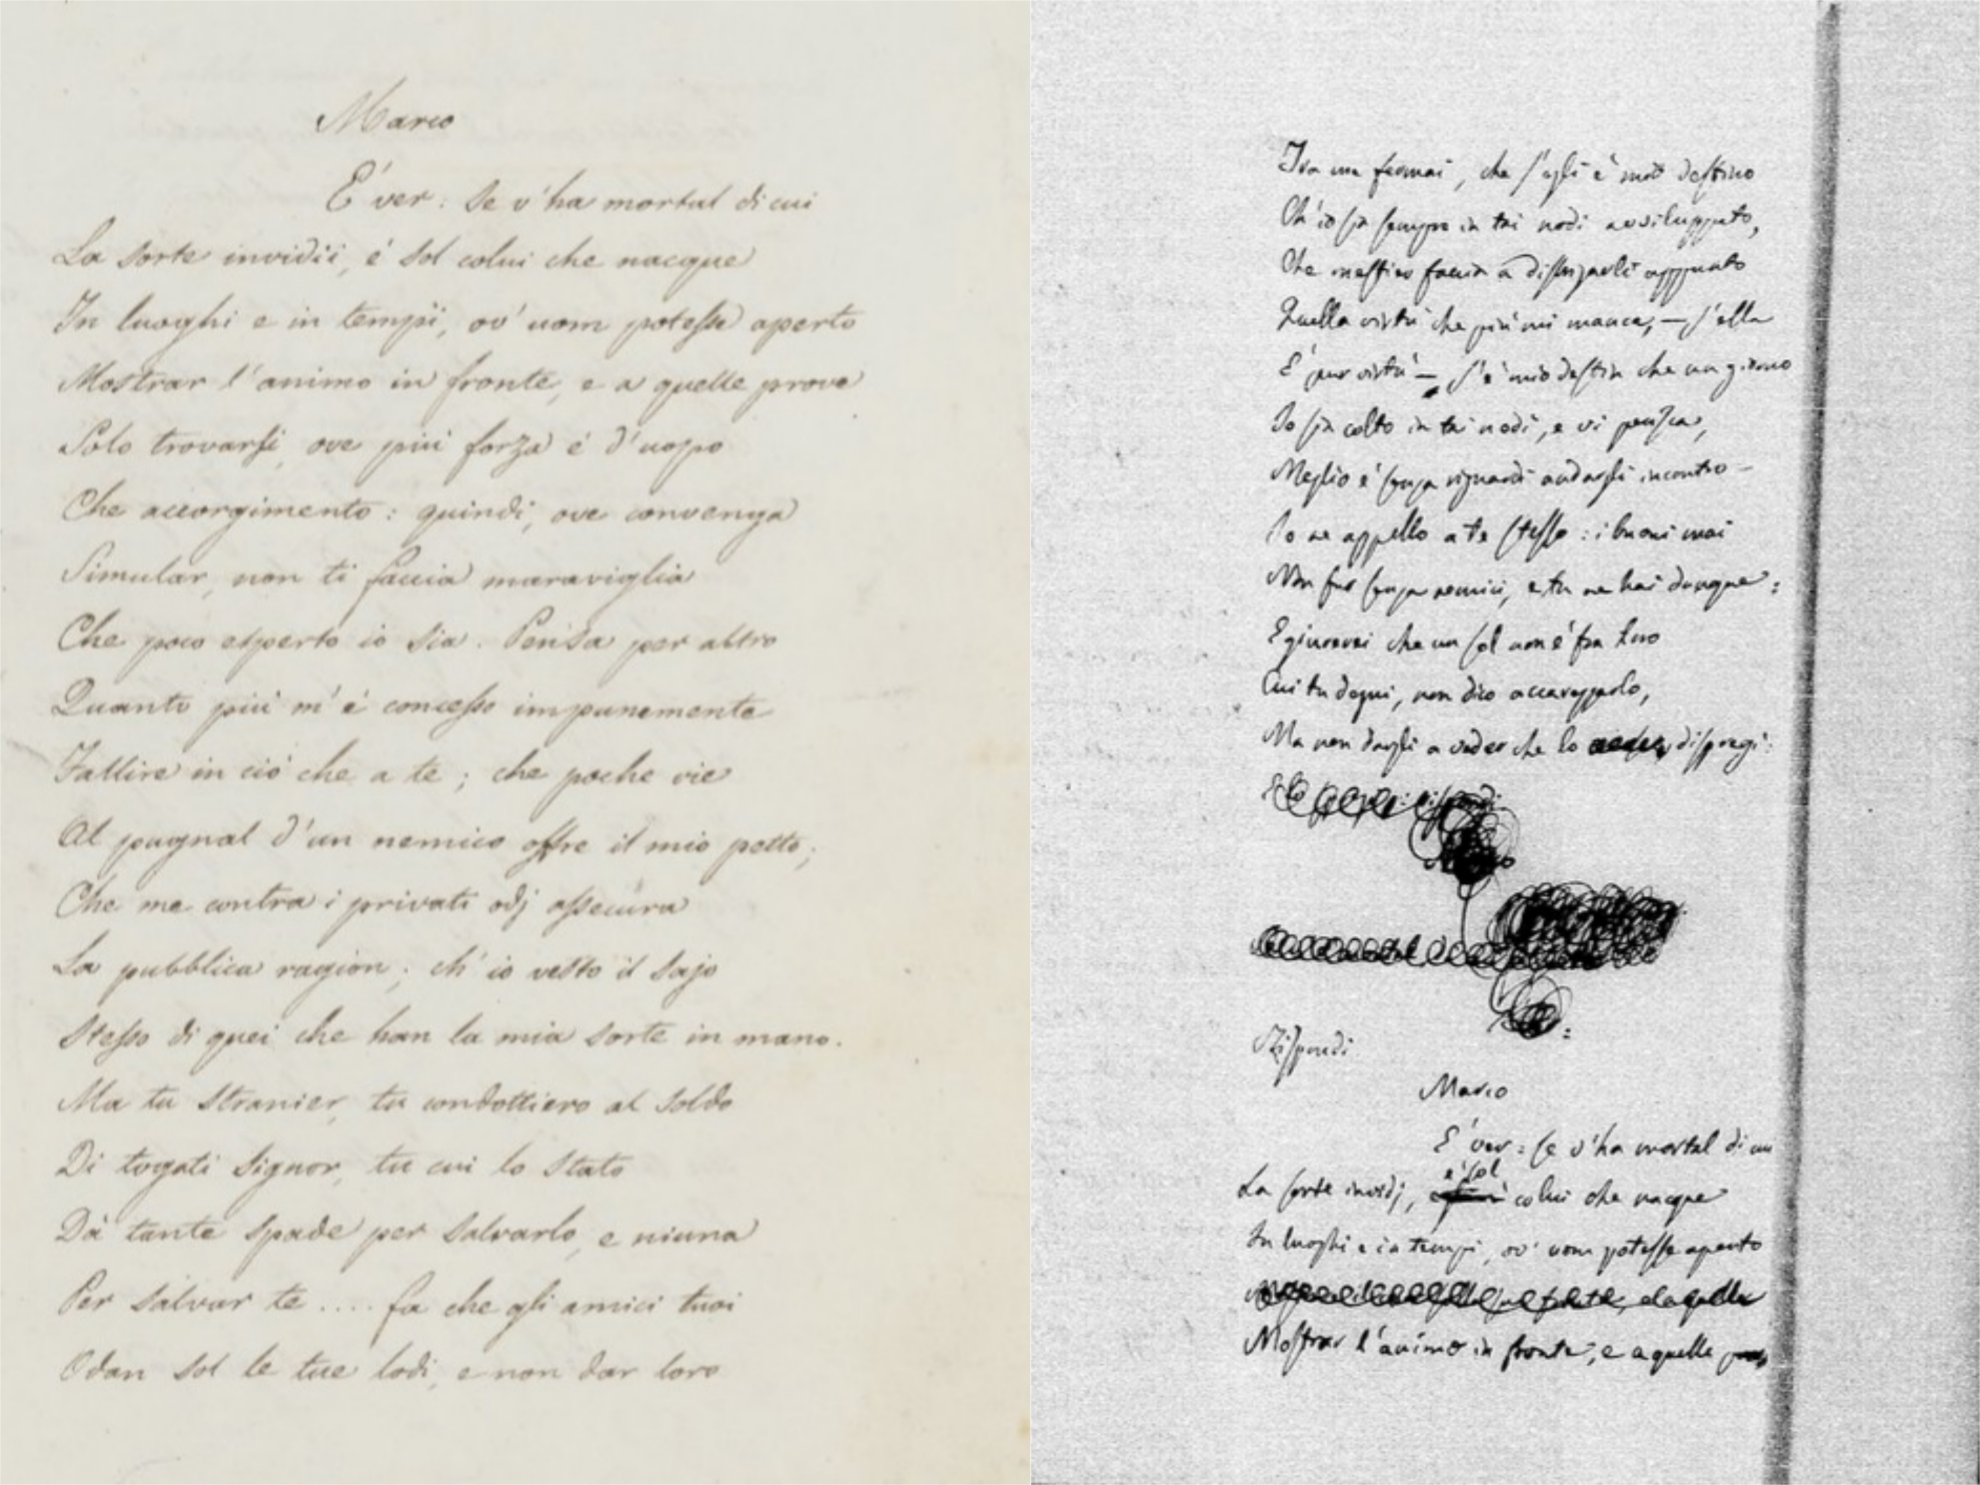 Marco
E' ver: se v'ha mortal di cui
La sorte invidii, é sol colui che nacque
In luoghi e in tempi, ov' uom potesse aperto
Mostrar l'animo in fronte, e a quelle prove
Solo trovarsi, ove più forza é d'uopo
Che accorgimento: quindi, ove convenga
Simular, non ti faccia maraviglia
Che poco esperto io sia. Pensa per altro
Quanto più m' é concesso impunemente
Fallire in ciò che a te; che poche vie
Al pugnal d'un nemico offre il mio petto;
Che me contra i privati odj assecura
La pubblica ragion; ch' io vesto il sajo
Stesso di quei che han la mia sorte in mano.
Ma tu stranier, tu condottiero al soldo
Di togati signor, tu cui lo Stato
Dà tante spade per salvarlo, e niuna
Per salvar te .... fa che gli amici tuoi
Odan sol le tue lodi, e non dar loro
fermai, che s'egli è destino
Ch'io sia sempre in tai nodi avviluppato,
Che mestier faccia a appunto
Quella virtù che più mi manca, — s'ella
E' pur virtù — s'è mio destin che un giorno
Io sia colto in tai nodi, e vi perisca,
Meglio è senza riguardi andargli incontro —
Io ne appello a te stesso: i buoni mai
Non fur senza nemici, e tu ne hai dunque:
E giurerei che un sol non è fra loro
Cui tu degni, non dico accarezzarlo,
Ma non dargli a veder che lo dispregi:
Rispondi
Marco
E' ver: se v'ha mortal di cui
La sorte invidj, è sol colui che nacque
In luoghi e in tempi, ov' uom potesse aperto
Mostrar l'animo in fronte, e a quelle